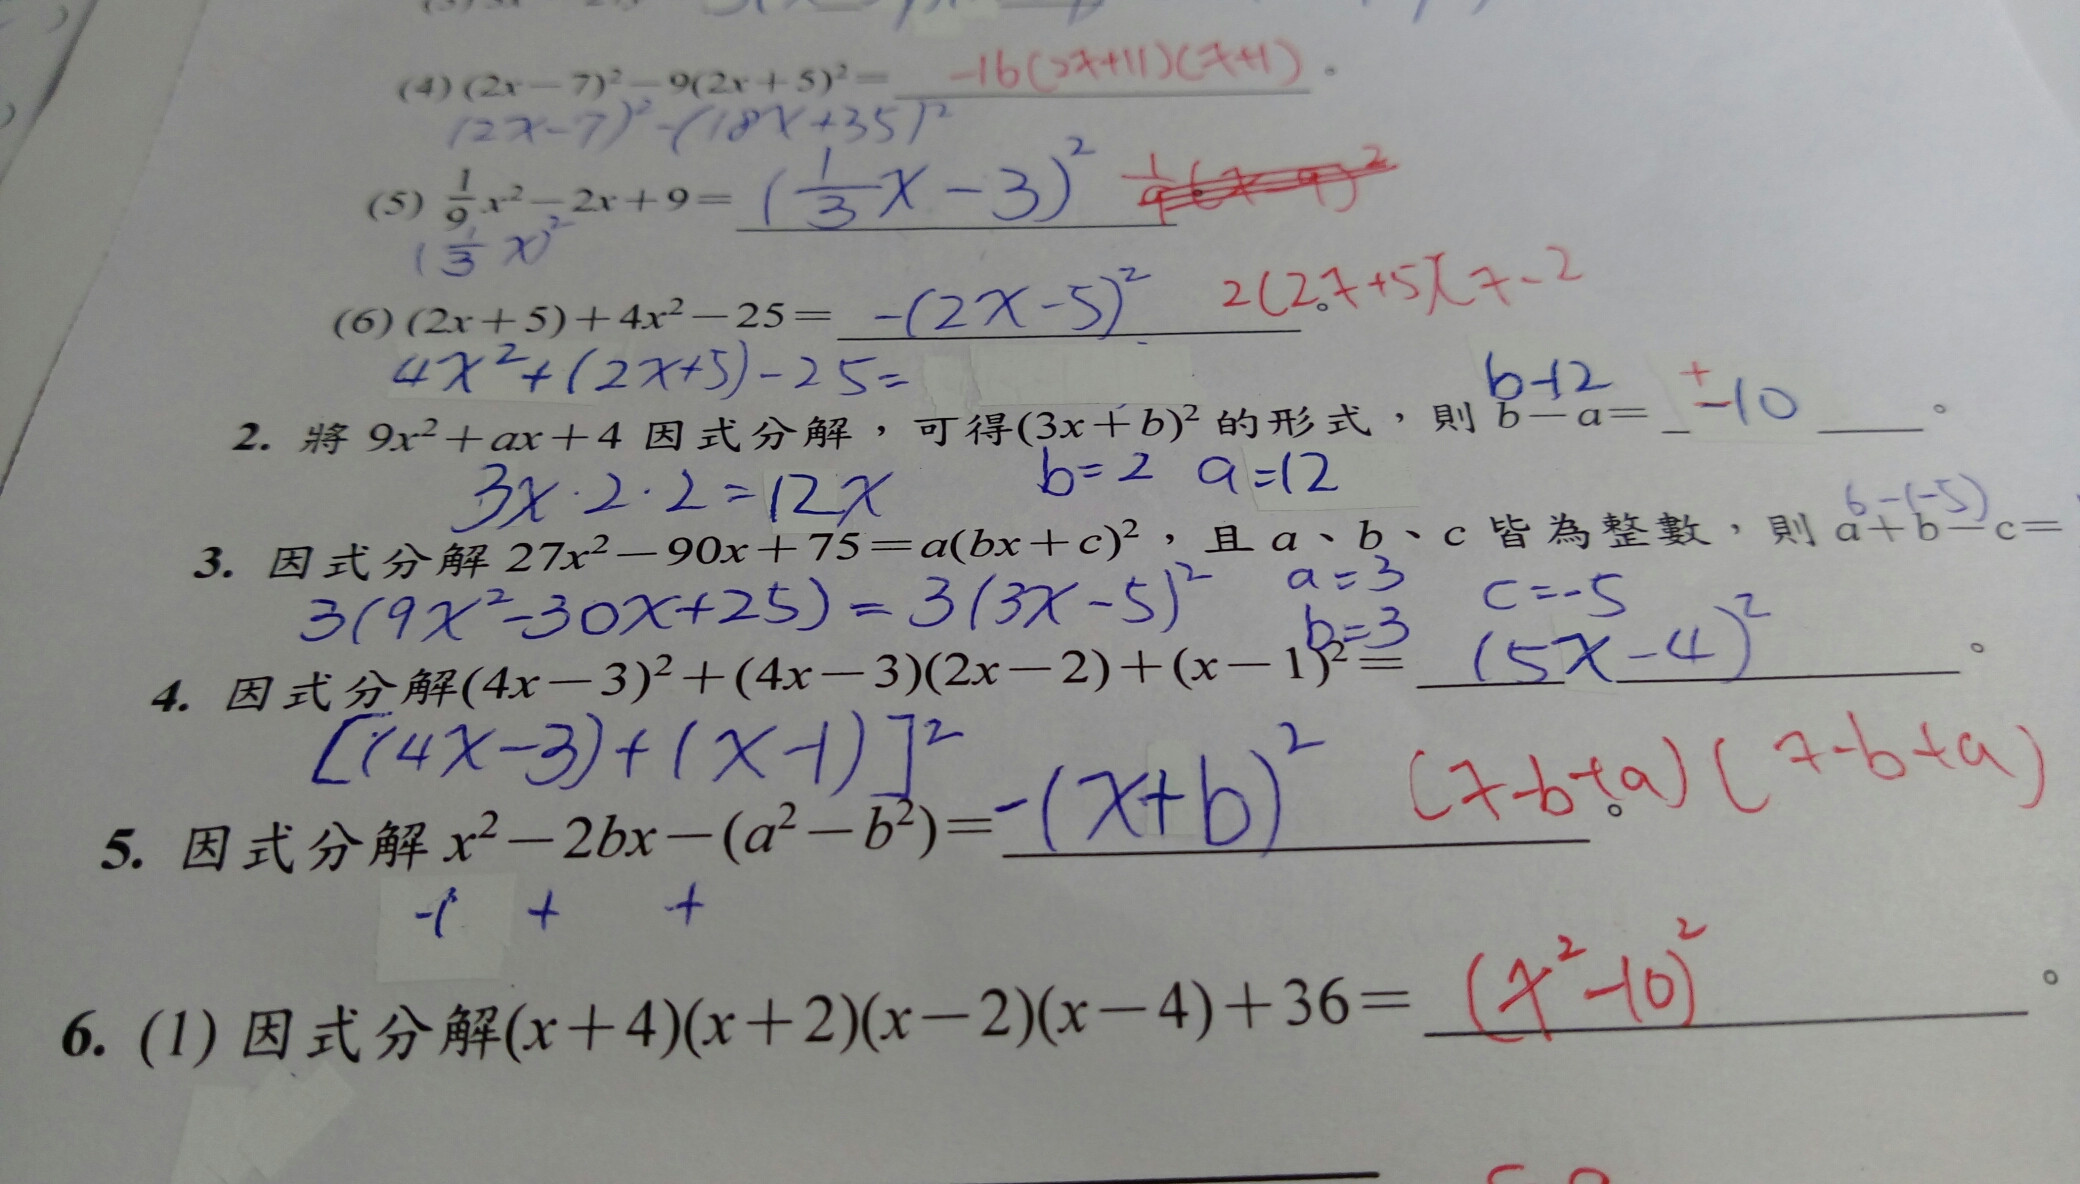 (4) (2x－7)²－9(2x＋5)²＝ -16(2x+11)(x+1)。
(2x-7)²-(18x+35)²
(5) 1/9 x²－2x＋9＝ (1/3 x-3)²
(1/3 x)²
(6) (2x＋5)＋4x²－25＝ -(2x-5)² 2(2x+5)(x-2。
4x²+(2x+5)-25=
b-12
2. 將 9x²＋ax＋4 因式分解，可得(3x＋b)² 的形式，則 b－a＝ ±10。
3x·2·2=12x b=2 a=12
6-(-5)
3. 因式分解 27x²－90x＋75＝a(bx＋c)²，且 a、b、c 皆為整數，則 a＋b－c＝
3(9x²-30x+25)=3(3x-5)² a=3 b=3 c=-5
4. 因式分解(4x－3)²＋(4x－3)(2x－2)＋(x－1)²＝ (5x-4)²。
[(4x-3)+(x-1)]²
5. 因式分解 x²－2bx－(a²－b²)＝ -(x+b)² (x-b+a)(x-b+a)。
-( + +
6. (1) 因式分解(x＋4)(x＋2)(x－2)(x－4)＋36＝ (x²-10)²。